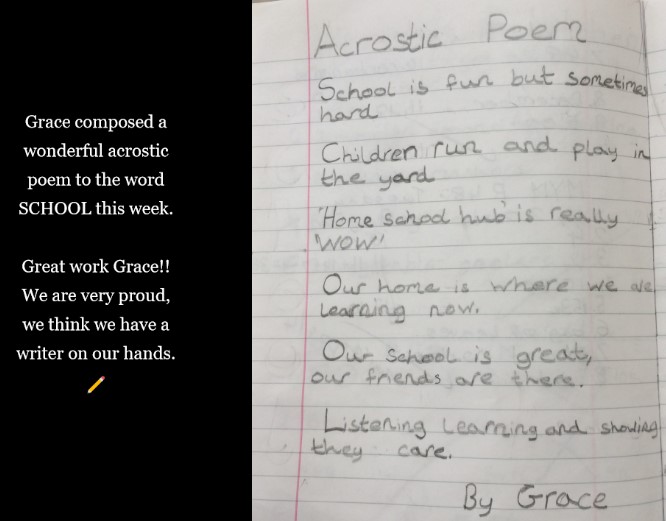 Grace composed a
wonderful acrostic
poem to the word
SCHOOL this week.
Great work Grace!!
We are very proud,
we think we have a
writer on our hands.
Acrostic Poem
School is fun but sometimes
hard
Children run and play in
the yard
'Home school hub' is really
'WOW!'
Our home is where we are
learning now.
Our school is great,
our friends are there.
Listening learning and showing
they care.
By Grace